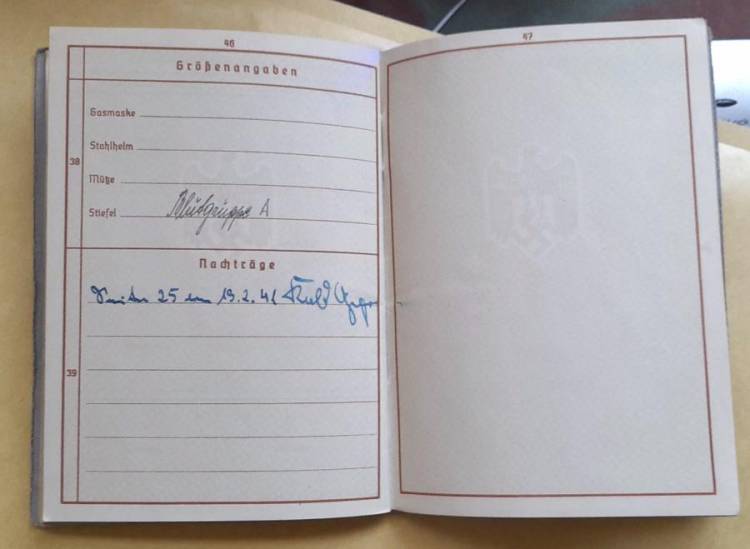 46
Größenangaben
38
Gasmaske
Stahlhelm
Mütze
Stiefel Blutgruppe A
Nachträge
25 19.2.41
39
47